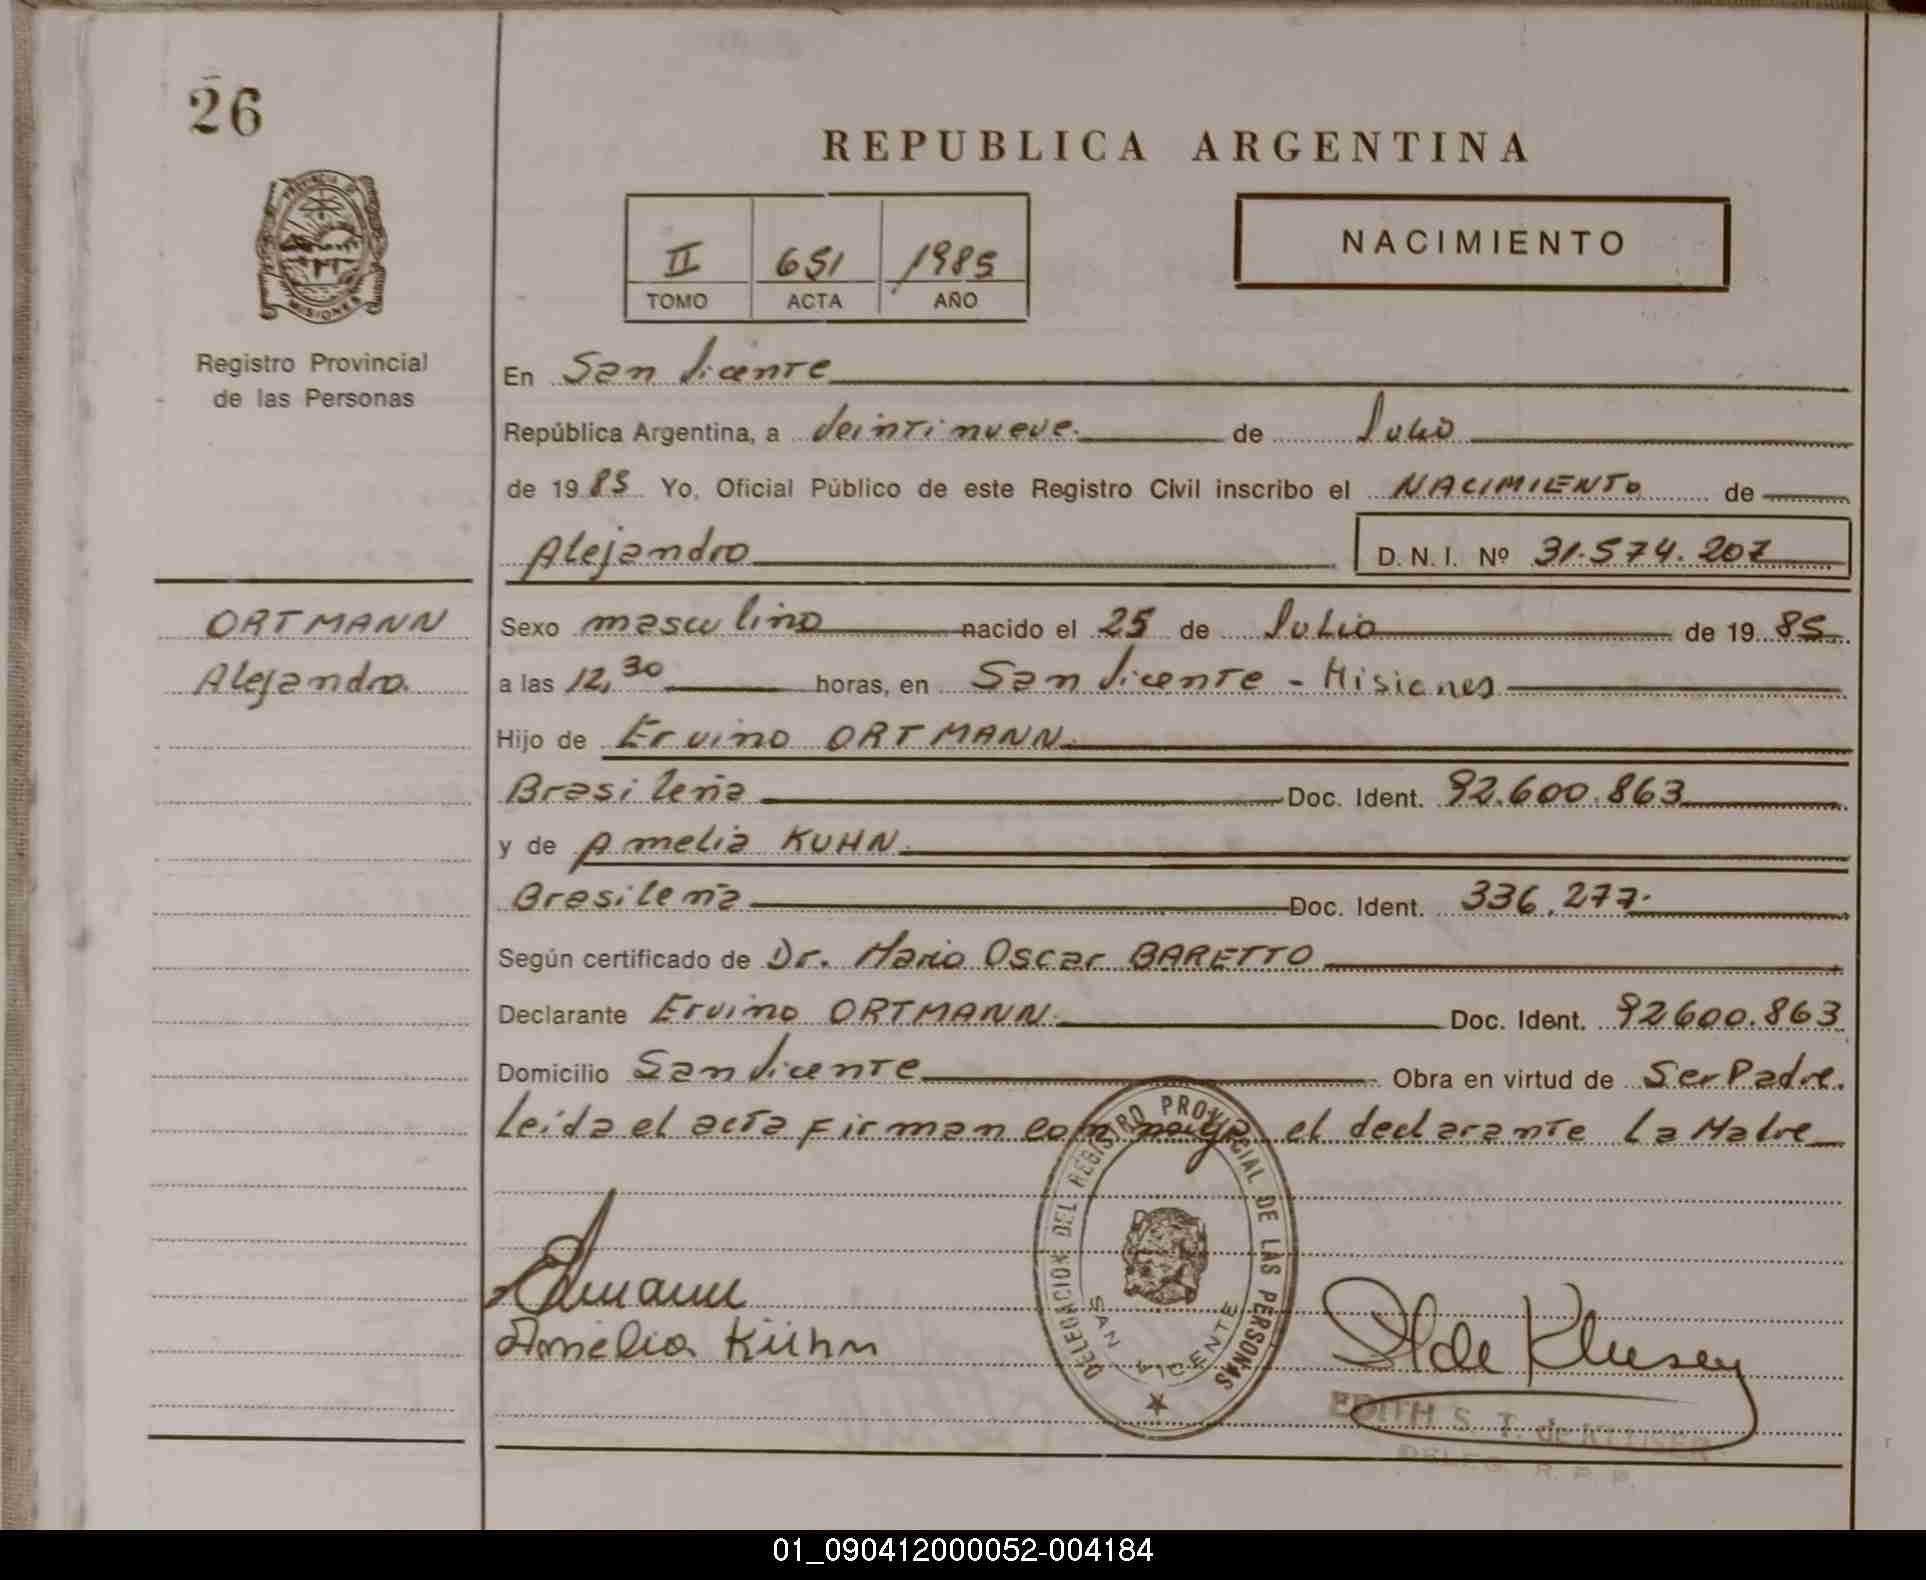 26
REPUBLICA ARGENTINA
PROVINCIA DE
MISIONES
II 651 1985
TOMO ACTA AÑO
NACIMIENTO
Registro Provincial
de las Personas
En San Vicente
República Argentina, a Veintinueve. de Julio
de 1985 Yo, Oficial Público de este Registro Civil inscribo el NACIMIENTO de
Alejandro D. N. I. Nº 31.574.207
ORTMANN
Alejandro.
Sexo masculino nacido el 25 de Julio de 1985
a las 12,30 horas, en San Vicente - Misiones
Hijo de Ervino ORTMANN.
Brasileña Doc. Ident. 92.600.863
y de Amelia KUHN.
Brasileña Doc. Ident. 336.277.
Según certificado de Dr. Mario Oscar BARETTO
Declarante Ervino ORTMANN. Doc. Ident. 92600.863
Domicilio San Vicente Obra en virtud de Ser Padre.
Leida el acta firman conmigo el declarante La Madre
DELEGACION DEL REGISTRO PROVINCIAL DE LAS PERSONAS
SAN VICENTE
Amelia Kühn
EDITH S. T. de KLUSER
DELEG. R. P. P.
01_090412000052-004184